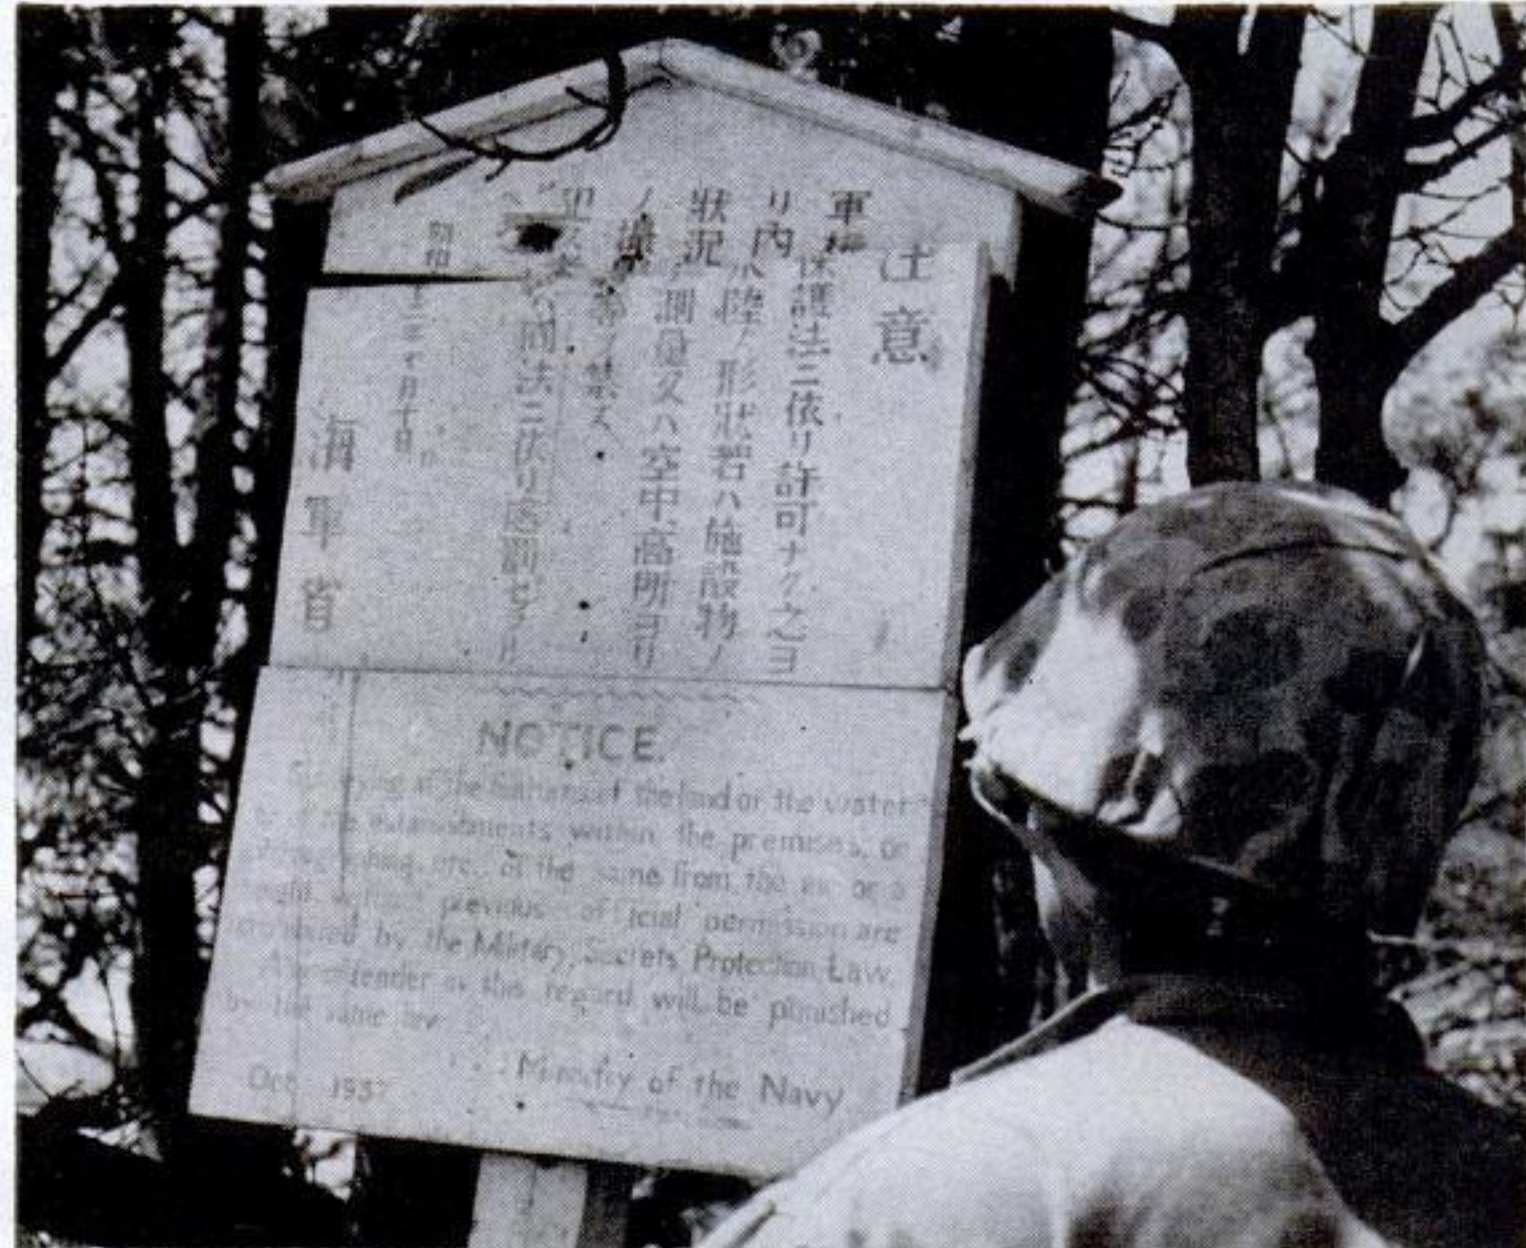 注意
軍機保護法ニ依リ許可ナク之ヨ
リ内水陸ノ形状若ハ施設物ノ
状況 測量又ハ空中、高所ヨリ
ノ撮 等ヲ禁ス
同法ニ依リ処罰セラル
昭和十二年十月十日
海軍省
NOTICE.
Surveying of the features of the land or the water
or of the establishments within the premises, or
photographing, etc., of the same from the air or a
height without previous official permission are
prohibited by the Military Secrets Protection Law.
Any offender in this regard will be punished
by the same law.
Oct. 1937 Ministry of the Navy